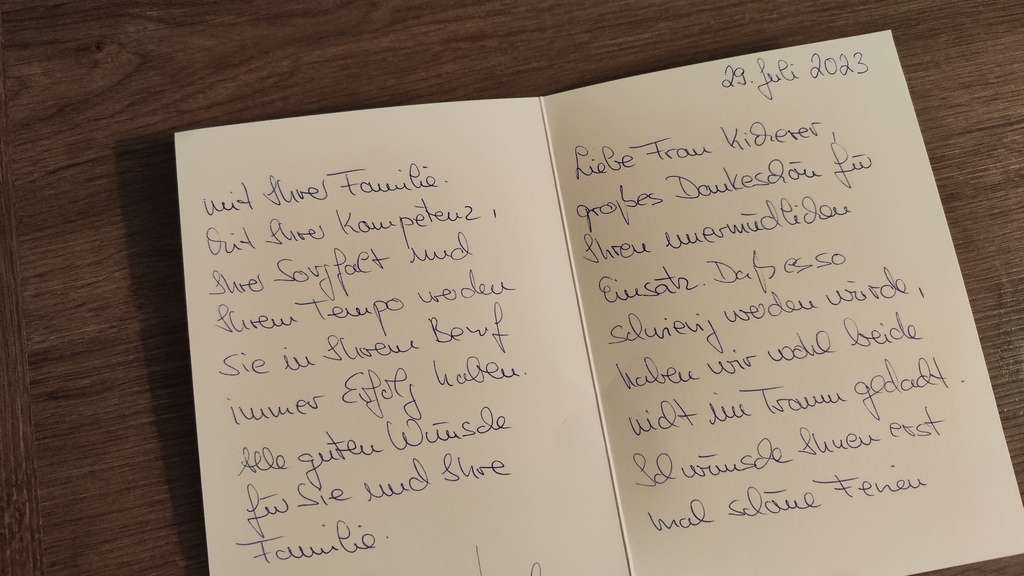 29. Juli 2023
Liebe Frau Kicherer,
großes Dankeschön für
Ihren unermüdlichen
Einsatz. Daß es so
schwierig werden würde,
haben wir wohl beide
nicht im Traum gedacht.
Ich wünsche Ihnen erst
mal schöne Ferien
mit Ihrer Familie.
Mit Ihrer Kompetenz,
Ihrer Sorgfalt und
Ihrem Tempo werden
Sie in Ihrem Beruf
immer Erfolg haben.
Alle guten Wünsche
für Sie und Ihre
Familie.